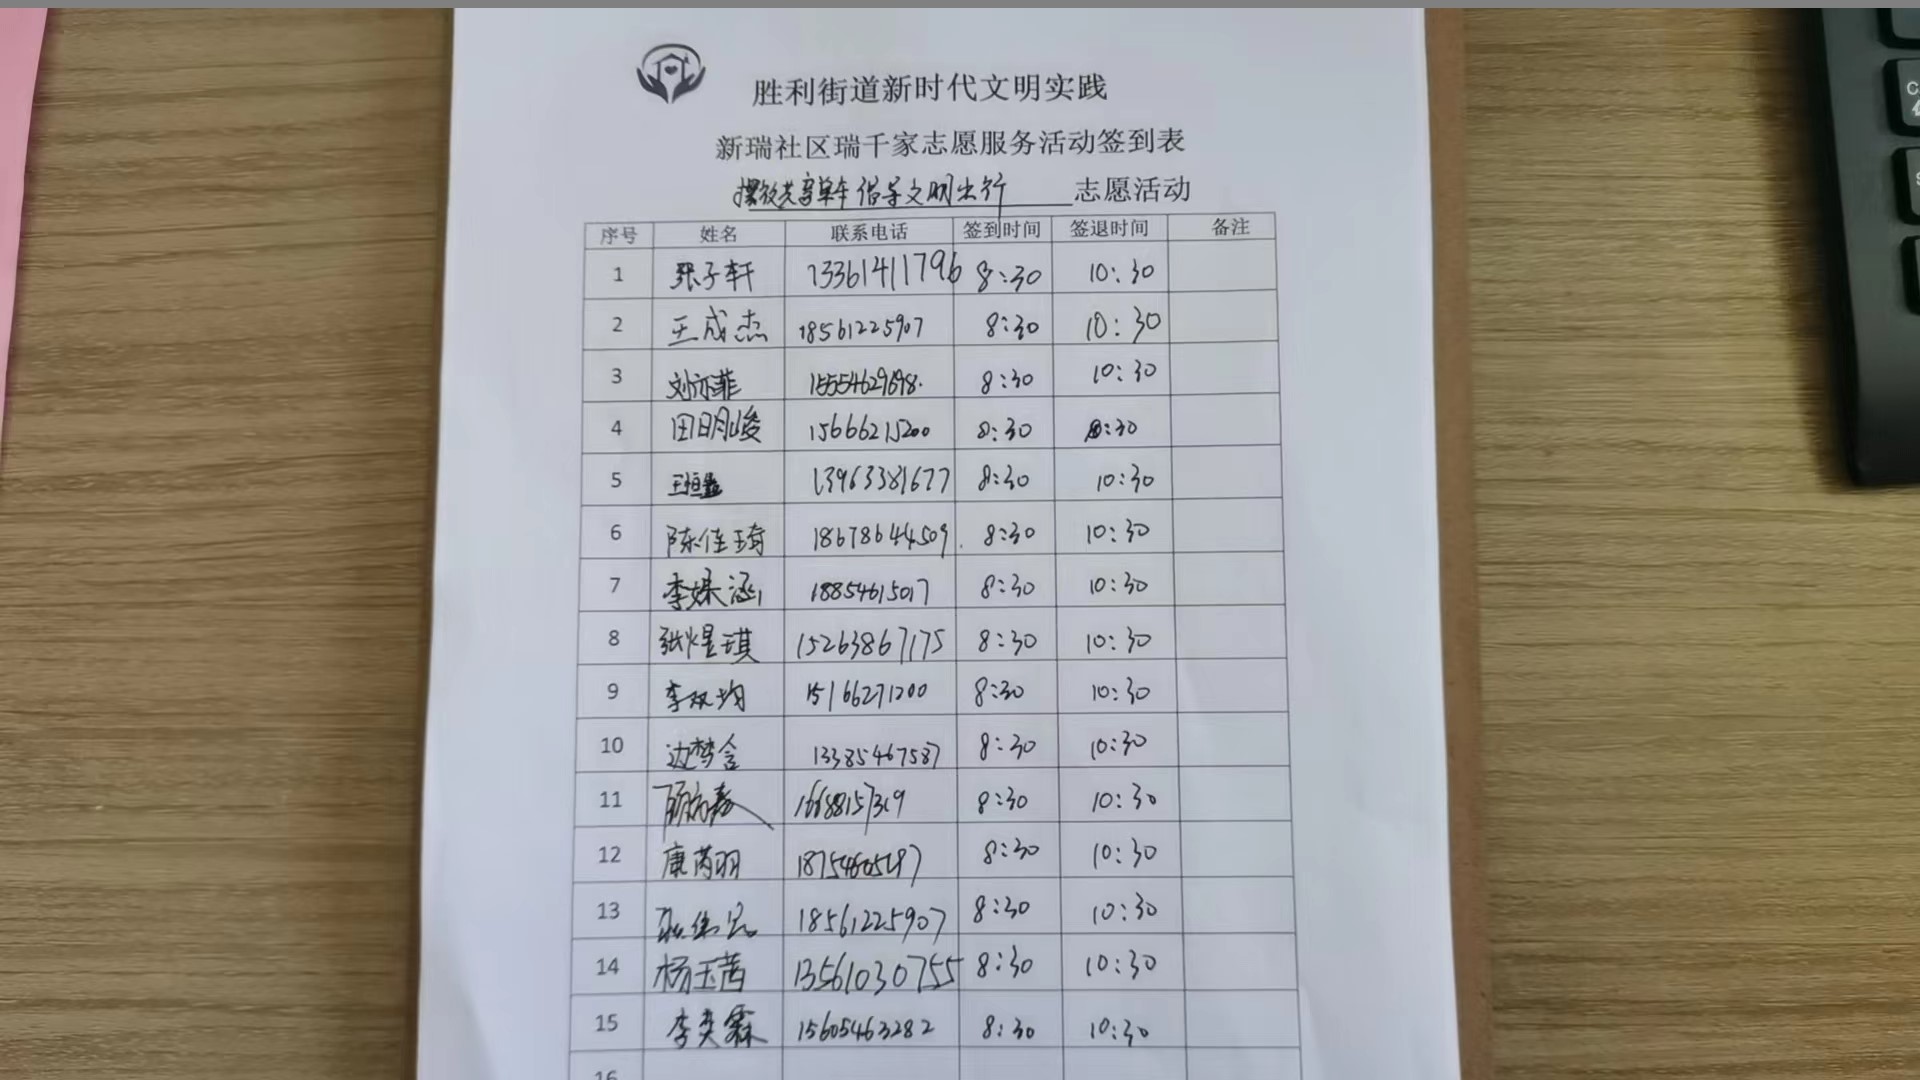 胜利街道新时代文明实践
新瑞社区瑞千家志愿服务活动签到表
摆放共享单车倡导文明出行 志愿活动
序号 姓名 联系电话 签到时间 签退时间 备注
1 张子轩 13361411796 8:30 10:30
2 王成杰 18561225907 8:30 10:30
3 刘亦菲 8:30 10:30
4 田明峻 15666215200 8:30 8:30
5 13963381677 8:30 10:30
6 陈佳琦 18678644509 8:30 10:30
7 李姝涵 18854615017 8:30 10:30
8 张煜琪 15263867175 8:30 10:30
9 李双均 15166271200 8:30 10:30
10 边梦含 13385467587 8:30 10:30
11 8:30 10:30
12 康芮羽 8:30 10:30
13 18561225907 8:30 10:30
14 杨玉茜 13561030755 8:30 10:30
15 李奕霖 15605463282 8:30 10:30
16